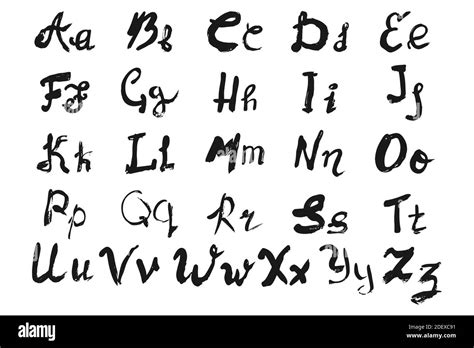 Aa Bb Cc Dd Ee
Ff Gg Hh Ii Jj
Kk Ll Mm Nn Oo
Pp Qq Rr Ss Tt
Uu Vv Ww Xx Yy Zz
alamy
Image ID: 2DEXC91
www.alamy.com